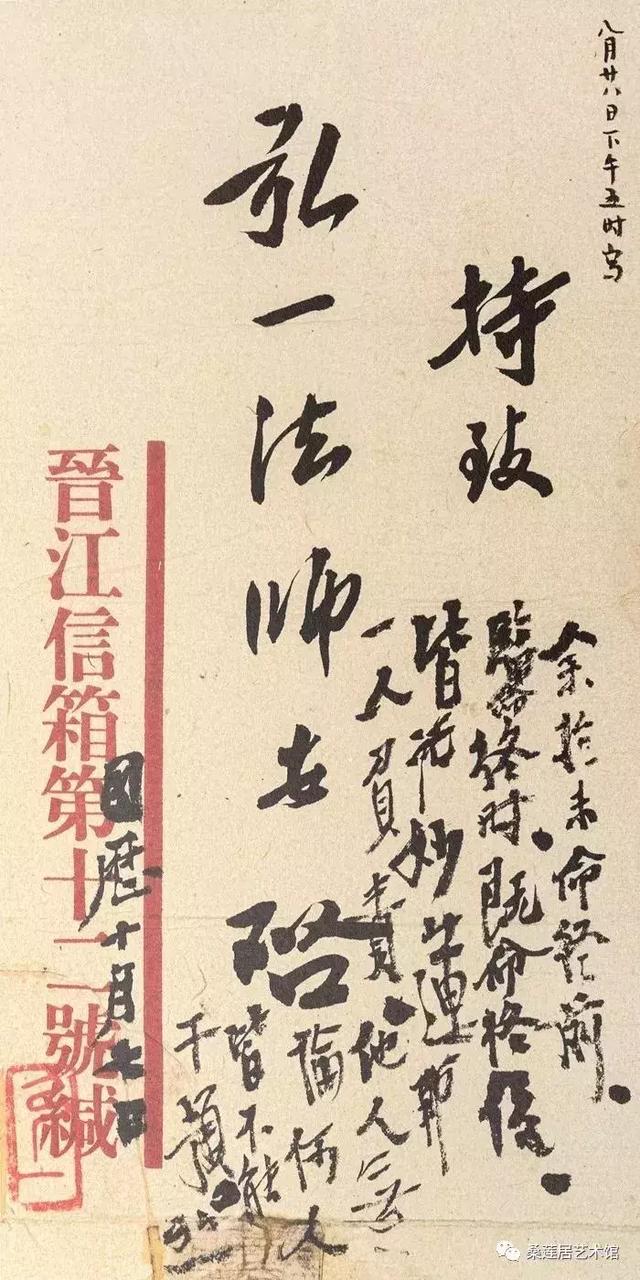 八月廿八日下午五时写
持致
弘一法师安启
余於未命终前、
臨命终时、既命终後、
皆托妙蓮师
一人負責、他人无
論何人
皆不能
干預。
国历十月七日
晉江信箱第十二號緘
弘一
桑莲居艺术馆